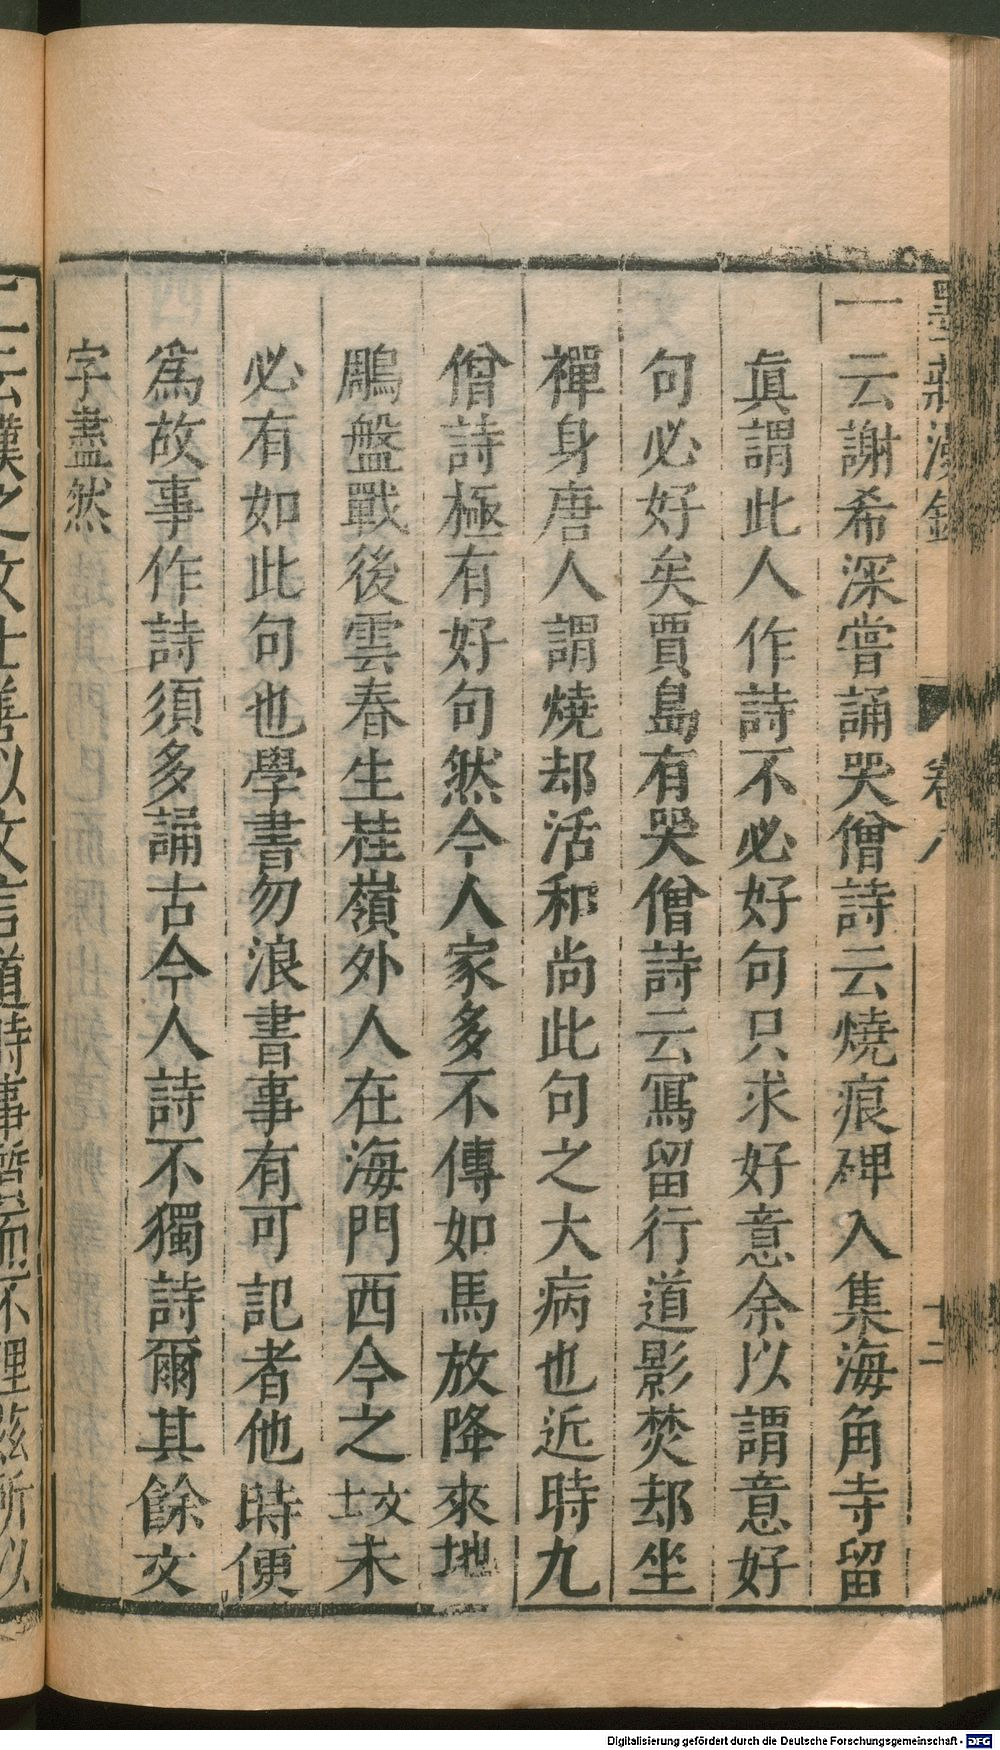 墨莊漫錄 卷八 十二
一云謝希深嘗誦哭僧詩云燒痕碑入集海角寺留
眞謂此人作詩不必好句只求好意余以謂意好
句必好矣賈島有哭僧詩云寫留行道影焚却坐
禪身唐人謂燒却活和尚此句之大病也近時九
僧詩極有好句然今人家多不傳如馬放降來地
鵰盤戰後雲春生桂嶺外人在海門西今之文士未
必有如此句也學書勿浪書事有可記者他時便
為故事作詩須多誦古今人詩不獨詩爾其餘文
字盡然
一云漢之文士善以文言道時事質而不俚茲所以
Digitalisierung gefördert durch die Deutsche Forschungsgemeinschaft - DFG